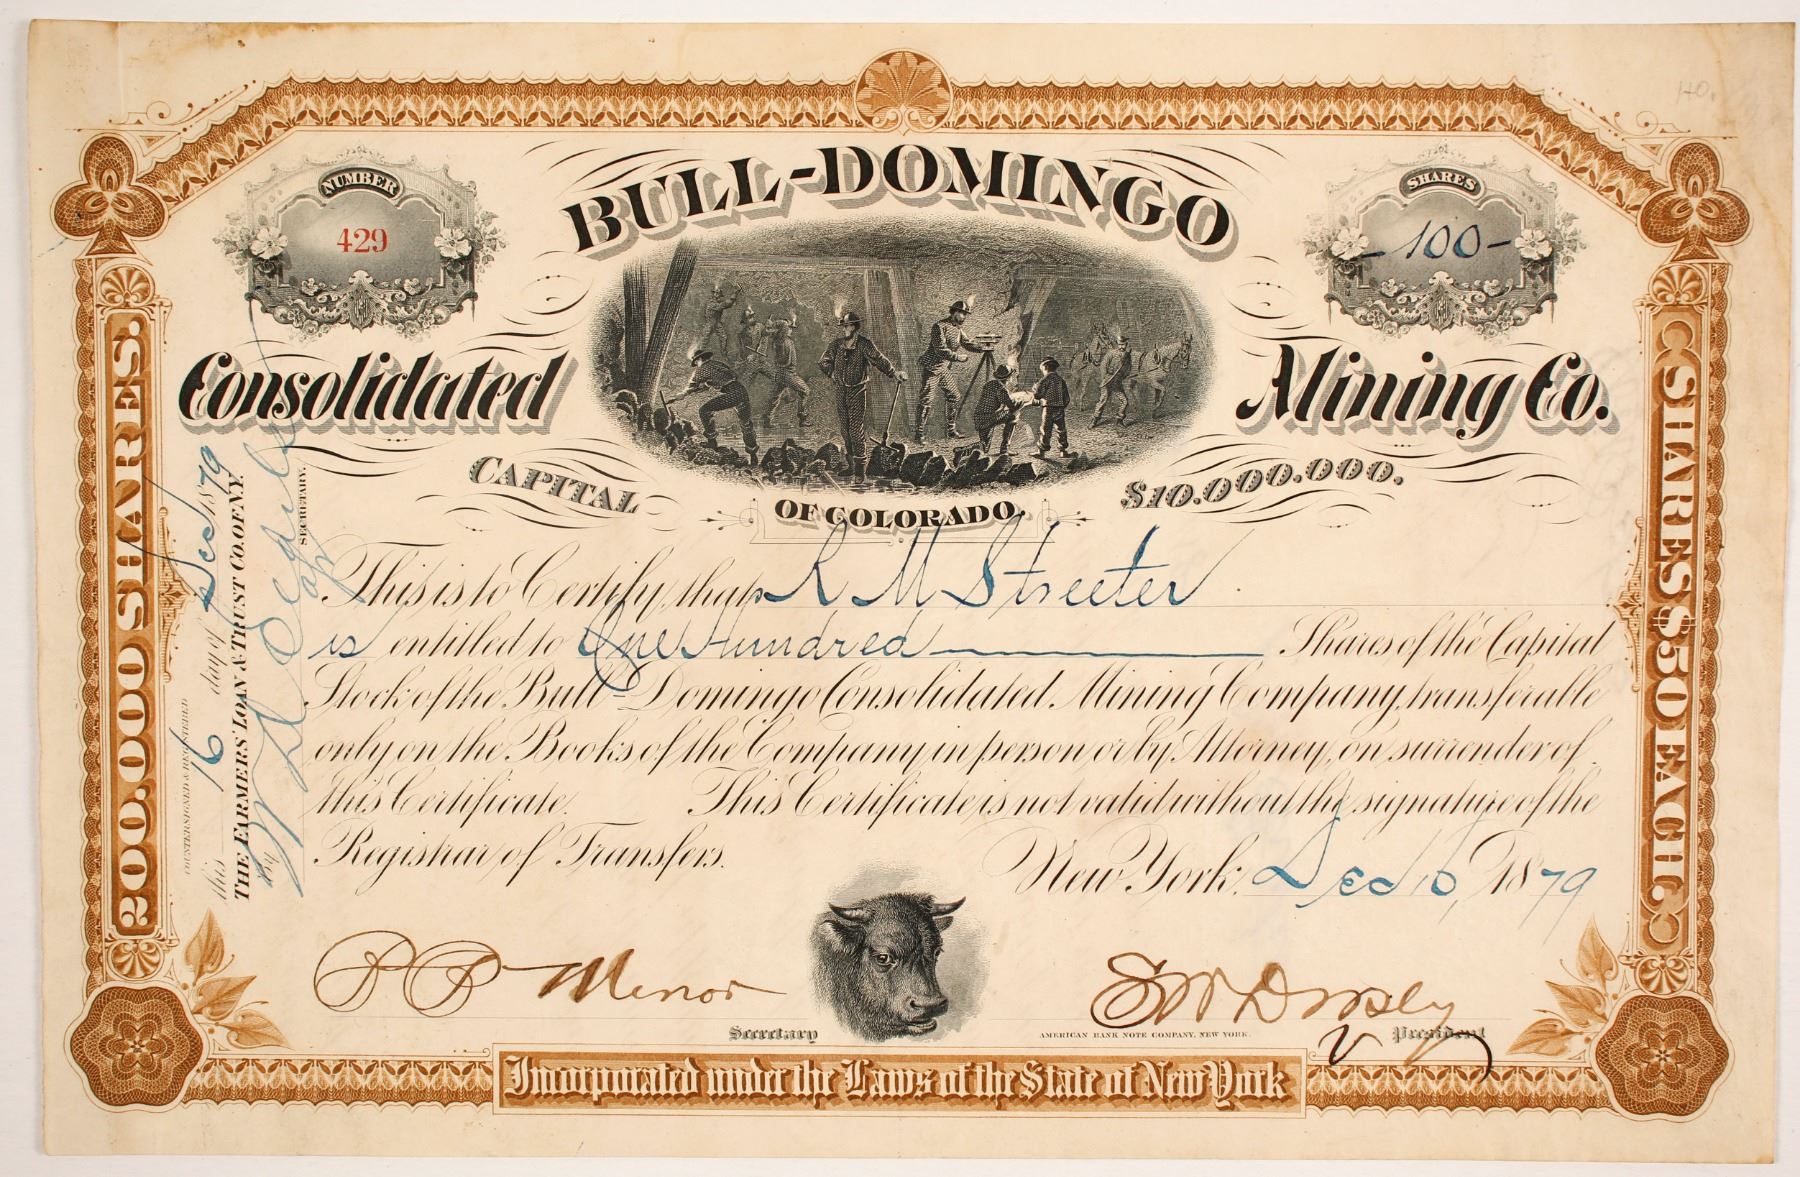 NUMBER
429
SHARES
-100-
BULL-DOMINGO
Consolidated Mining Co.
CAPITAL $10.000.000.
OF COLORADO.
This is to Certify, that R M Streeter
is entitled to One Hundred Shares of the Capital
Stock of the Bull-Domingo Consolidated Mining Company, transferable
only on the Books of the Company, in person or by Attorney, on surrender of
this Certificate. This Certificate is not valid without the signature of the
Registrar of Transfers.
New York, Dec 16, 1879
P P Minor
Secretary
S W Dorsey
V President
AMERICAN BANK NOTE COMPANY, NEW YORK.
Incorporated under the Laws of the State of New York
200.000 SHARES.
SHARES $50 EACH.
COUNTERSIGNED & REGISTERED
this 16 day of Dec 1879
THE FARMERS' LOAN & TRUST CO. OF N.Y.
By W D
SECRETARY.